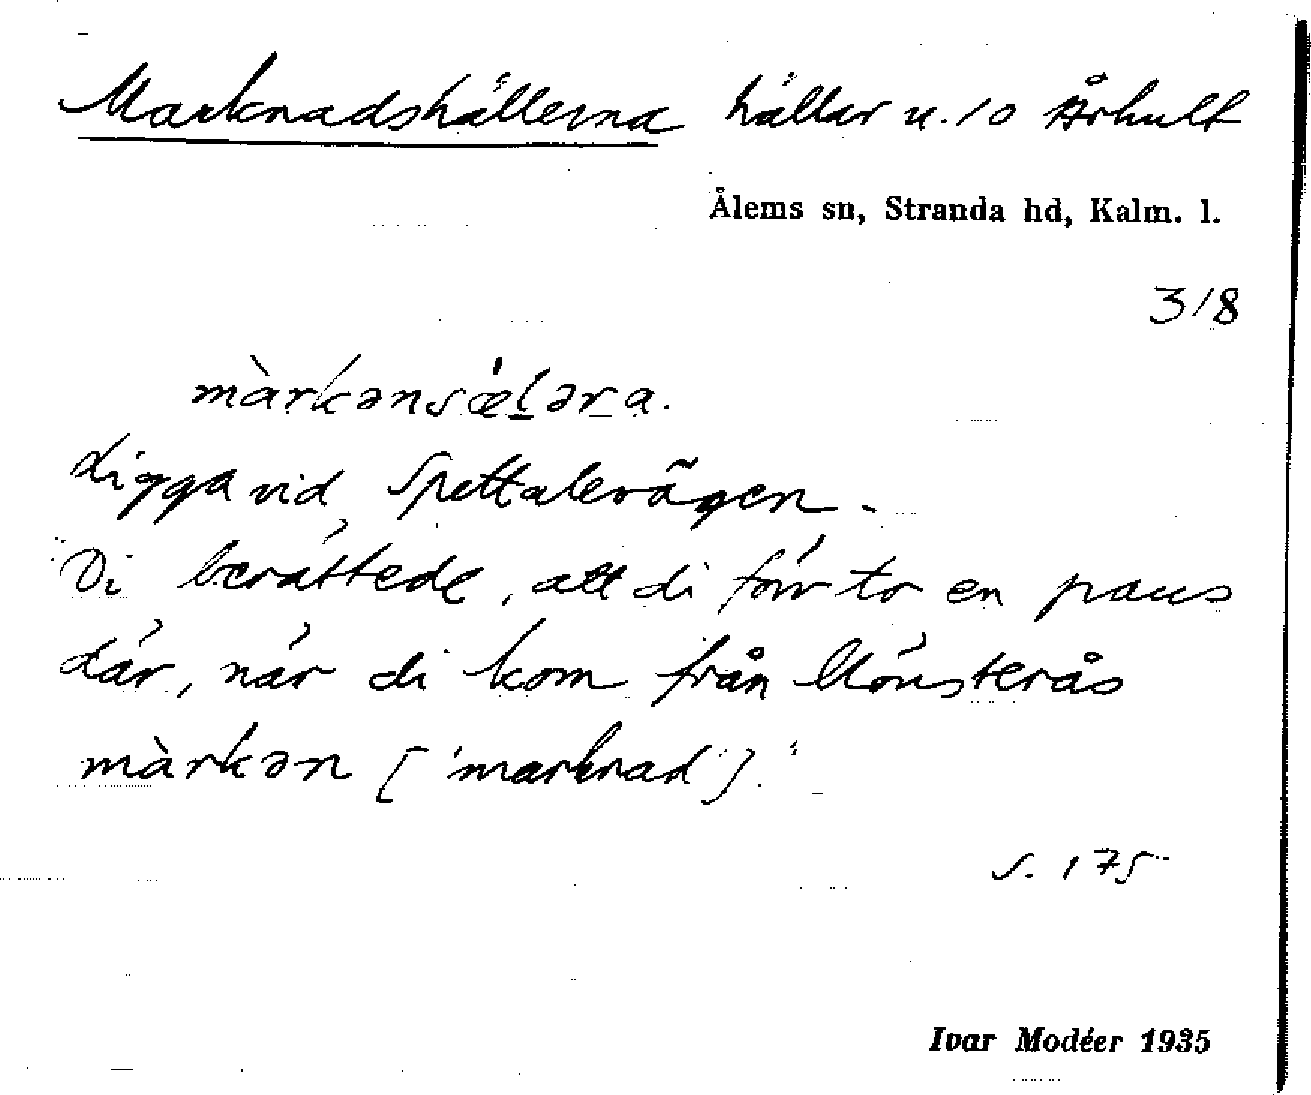 Marknadshällerna hällar u. 10 Århult
Ålems sn, Stranda hd, Kalm. l.
318
màrkənsæ̀ḻəṟa.
Ligga vid Spettalevägen.
"Di berättede, att di förr to en paus
där, när di kom från Mönsterås
màrkən ['marknad']."
s. 175
Ivar Modéer 1935